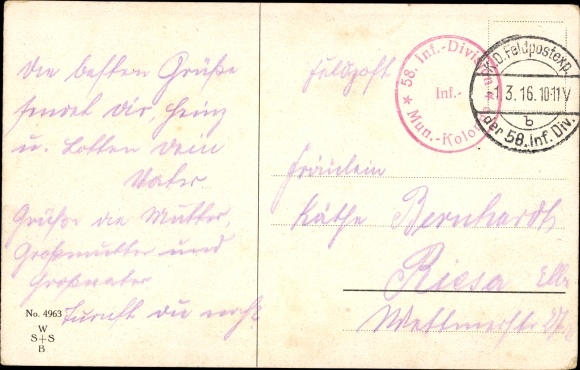 Die besten Grüße
sendet Dir, Heinz
u. Lotten Dein
Vater
Grüße die Mutter,
Großmutter und
Großvater
Turnst Du noch?
No. 4963
W
S+S
B
Feldpost
58. Inf.-Division
Inf.-
Mun.-Kolonne
K.D. Feldpostexp.
1.3.16.10-11V
b
der 58. Inf. Div.
Fräulein
Käthe Bernhardt,
Riesa Elbe
Wettinerstr. 27